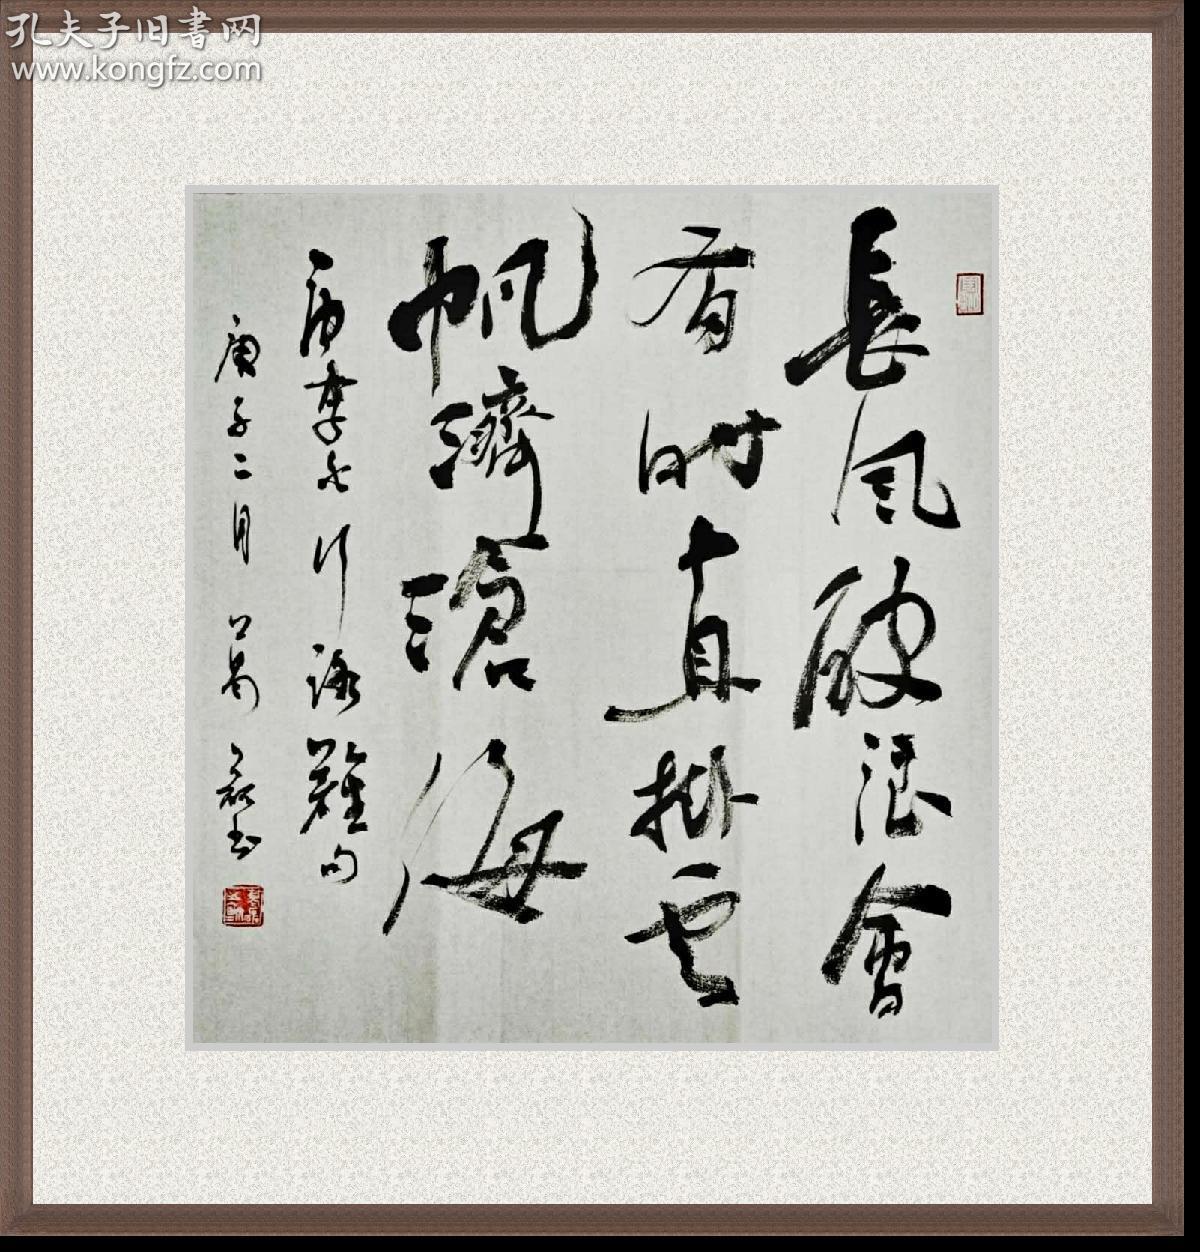 孔夫子旧书网
www.kongfz.com
長風破浪會
有时直掛雲
帆濟滄海
唐李白行路難句
庚子二月